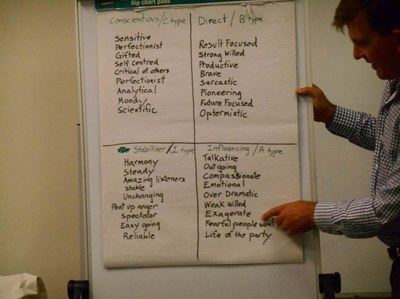 flip chart pads
Conscientious/C type
Sensitive
Perfectionist
Gifted
Self Centred
Critical of others
Perfectionist
Analytical
Moody
Scientific
Direct / B type
Result Focused
Strong Willed
Productive
Brave
Sarcastic
Pioneering
Future Focused
Optermistic
Stabiliser/I type
Harmony
Steady
Amazing listeners
stable
Unchanging
Pent up anger
spectator
Easy going
Reliable
Influencing/A type
Talkative
Out going
Compassionate
Emotional
Over Dramatic
Weak Willed
Exagerate
Fearful people wont
Life of the party